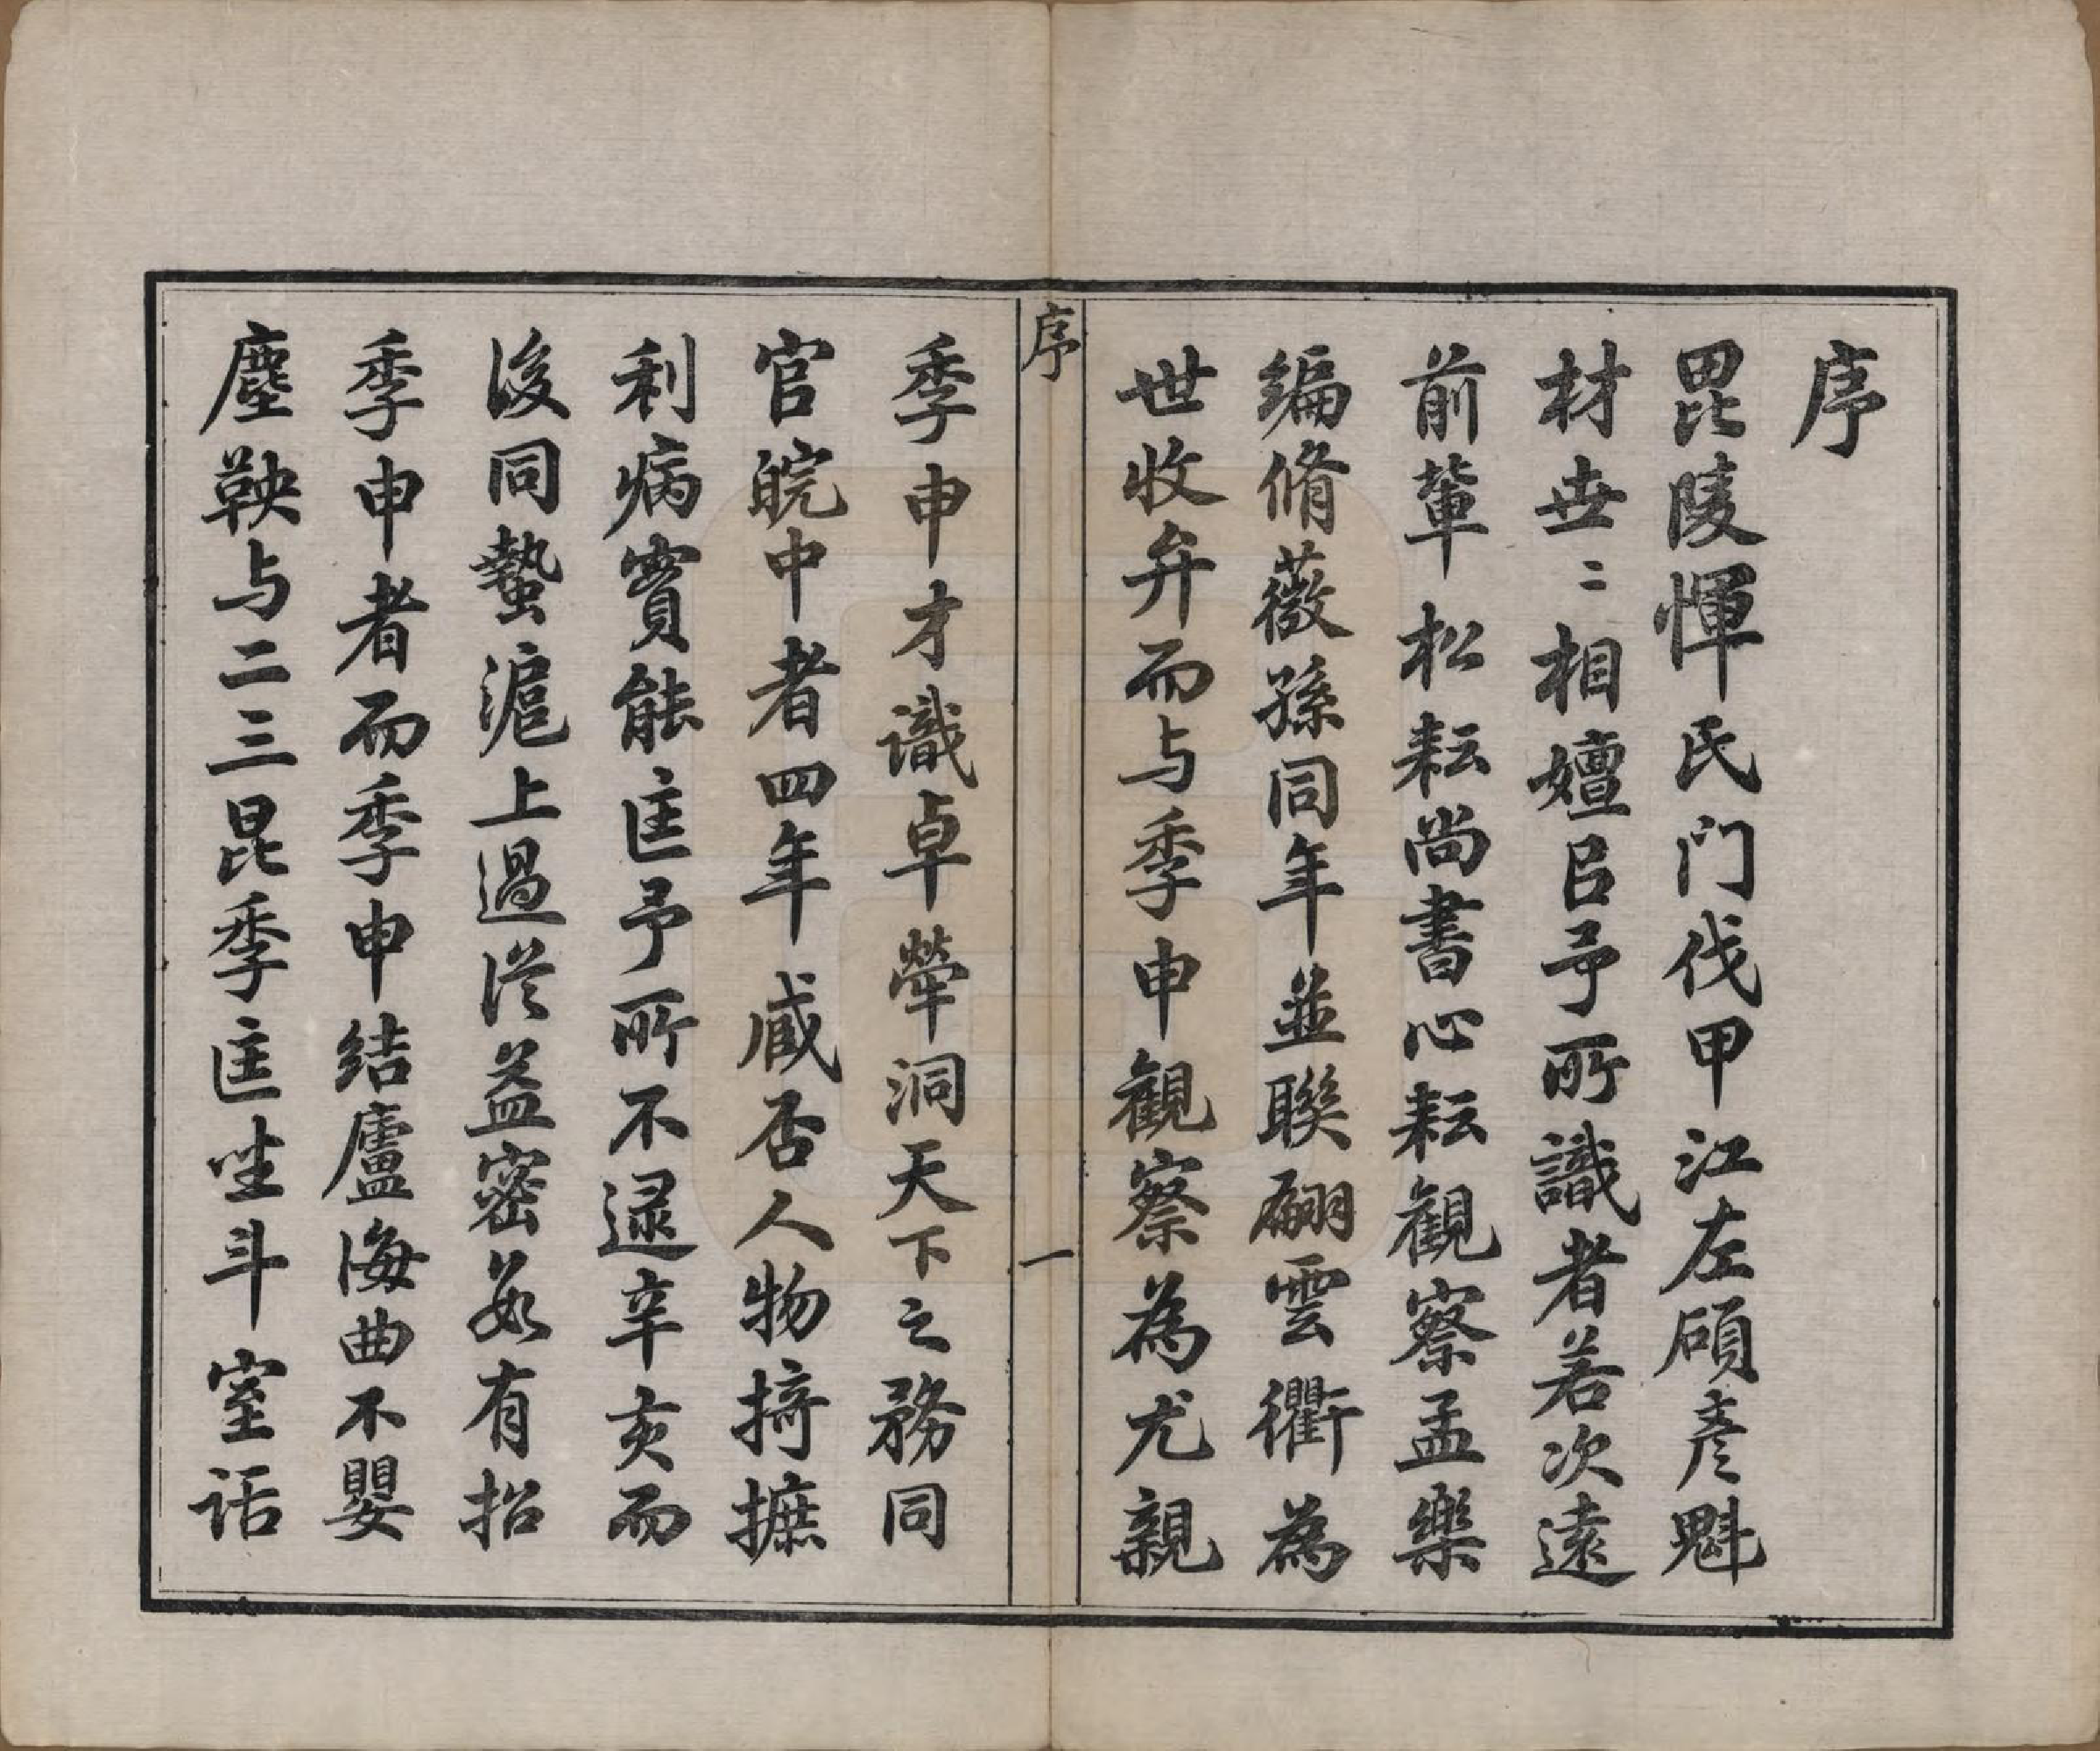 序
毘陵惲氏門伐甲江左碩彥魁
材世〻相嬗㠯予所識者若次遠
前輩松耘尚書心耘觀察孟樂
編脩薇孫同年並聯翩雲衢為
世收弁而与季申觀察為尤親
序
一
季申才識卓犖洞天下之務同
官皖中者四年臧否人物掎摭
利病實能匡予所不逮辛亥而
後同蟄滬上過從益密每有招
季申者而季申結廬海曲不嬰
塵鞅与二三昆季匡坐斗室話